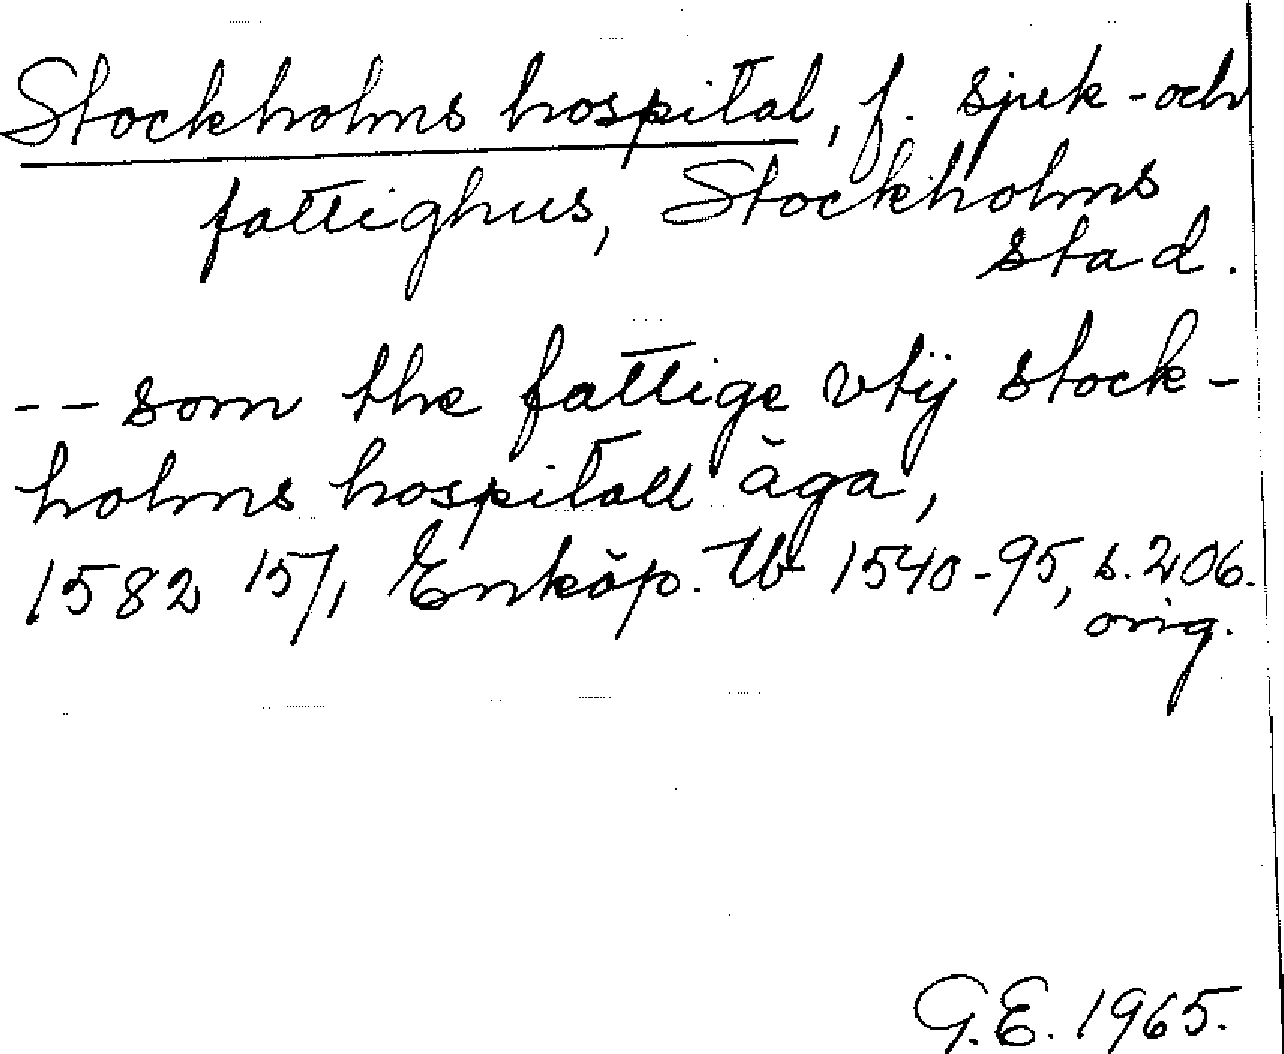 Stockholms hospital, f. sjuk- och
fattighus, Stockholms
stad.
-- som the fattige vtij stock-
holms hospitall äga,
1582 15/1, Enköp. Tb 1540-95, s. 206.
orig.
G.E. 1965.